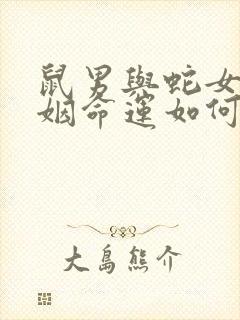 鼠男與蛇女
姻命運如何
大島熊介